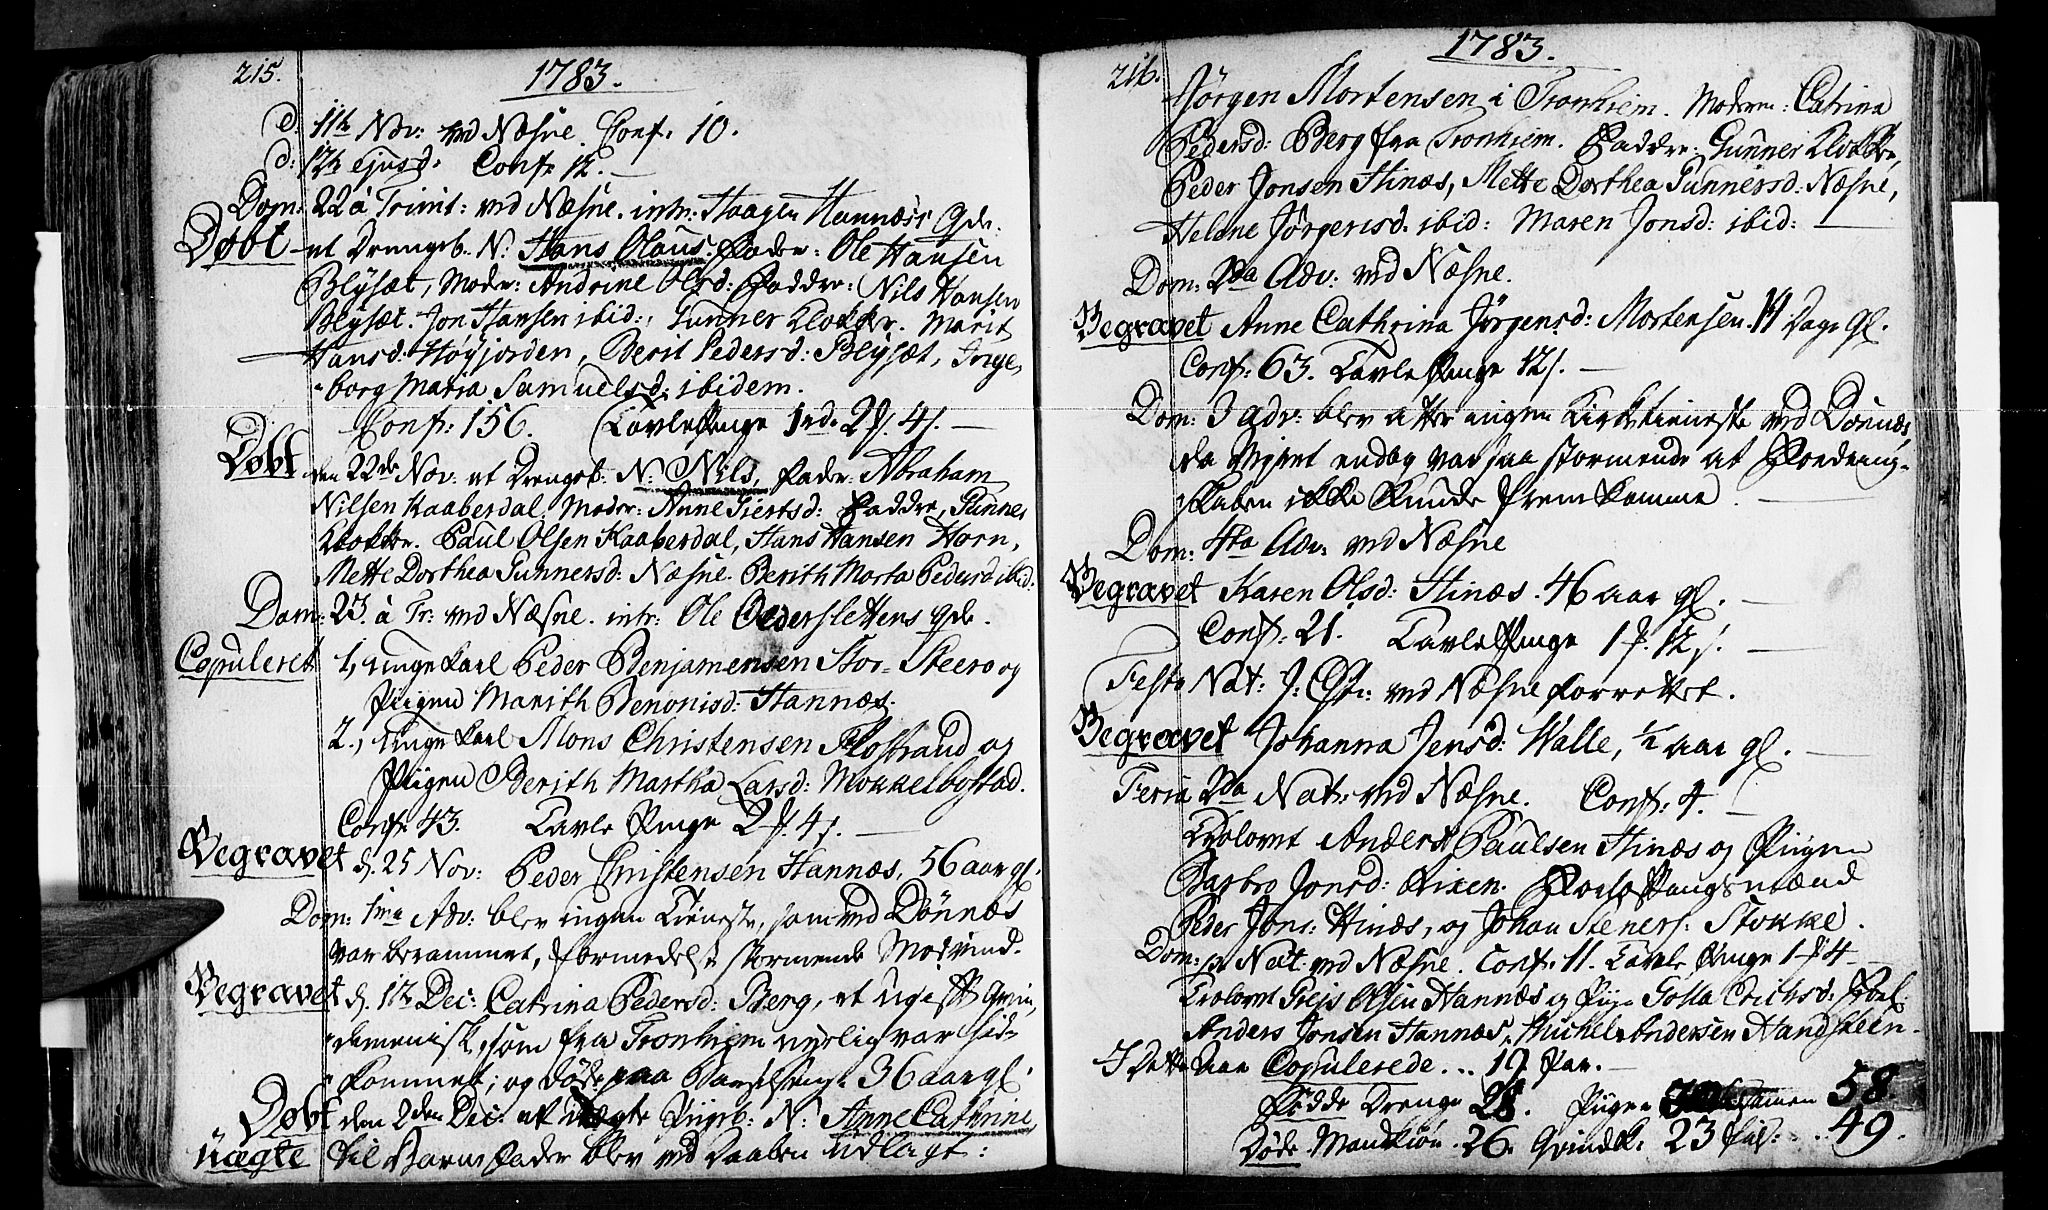 215.
1783.
d: 11te Nov: ved Næsne. Conf. 10.
d: 12te ejusd. Conf. 12.
Dom: 22 à Trinit: ved Næsne. intr: Haagen Hannæss Qde.
Døbt et Drengeb. N: Hans Olaus. Fader: Ole Hansen
Blysæt, Moder: Andrine Olsd: Faddre: Nils Hansen
Blysæt. Jon Hansen ibid:, Gunner Klokker. Marit
Hansd: Høyjorden, Berit Pedersd: Blysæt, Inge-
borg Maria Samuelsd: ibidem.
Conf: 156. Tavle Penge 1 rd. 2 f. 4 s.
Døbt den 22de Nov: et Drengeb. N: Nils, Fader: Abraham
Nilsen Kaaberdal. Moder: Anne Siertsd: Faddre, Gunner
Klokker. Paul Olsen Kaaberdal, Hans Hansen Horn,
Mette Dorthea Gunnersd: Næsne. Berith Marta Pedersd ibid:
Dom: 23. à Tr: ved Næsne. intr: Ole Oldersletten Qde.
Copuleret 1, Unge karl Peder Benjamensen Stor-Steero og
Piigen Marith Benonisd: Hannæs.
2., Unge karl Mons Christensen Flostrand og
Piigen Berith Martha Larsd: Mokkelbostad.
Conf. 43. Tavle Penge 2 f. 4 s.
Begravet d. 25 Nov: Peder Christensen Hannæs, 56 aar gl.
Dom: 1ma Adv: blev ingen Tieneste, som ved Dønnæs
var berammet, formedelst stormende Modvind.
Begravet d. 1te Dec: Catrina Pedersd: Berg, et Ugift Qvin-
demenisk, som fra Tronhiem nyelig var hid-
kommet, og døde paa Barselseng 36 aar gl.
Døbt den 2den Dec: et uægte Piigeb: N: Anne Cathrine,
uægte til Barne fader blev ved Daaben udlagt:
216.
1783.
Jörgen Mortensen i Tronhiem. Moderen: Catrina
Pedersd: Berg fra Tronhiem. Faddre: Gunner Klokker,
Peder Jonsen Hinæs, Mette Dorthea Gunnersd: Næsne,
Helene Jörgensd. ibid: Maren Jonsd: ibid:
Dom: 2da Adv: ved Næsne.
Begravet Anne Cathrina Jörgensd: Mortensen. 14 Dage gl.
Conf: 63. Tavle Penge 12 s.
Dom: 3 Adv: blev atter ingen Kirketieneste ved Dønnæs,
da Vejret endog var saa stormende at Fordring-
skaben ikke kunde frem komme.
Dom: 4ta Adv: ved Næsne
Begravet Karen Olsd: Hinæs. 46 aar gl.
Conf: 21. Tavle Penge 1 f. 12 s.
Festo Nat: J: Chr: ved Næsne forrettet.
Begravet Johanna Jensd: Walle, 1/2 aar gl.
Feria 2da Nat: ved Næsne. Conf: 4.
Trolovet Anders Paulsen Hinæs og Piigen
Barbro Jonsd: Forlovningsmænd
Peder Jons: Hinæs, og Johan Steners: Stokke.
Dom: p. Nat. ved Næsne. Conf: 11. Tavle Penge 1 f. 4
Trolovet Olsen Hannæs og Pige Erichsd:
Anders Jonsen Hannæs, Michel Andersen Handsteen.
I dette Aar Copulerede... 19 Par.
Fødde Drenge 28. Piigen Sammen 58.
Døde. Mandkiøn. 26. Qvindek: 23 49.